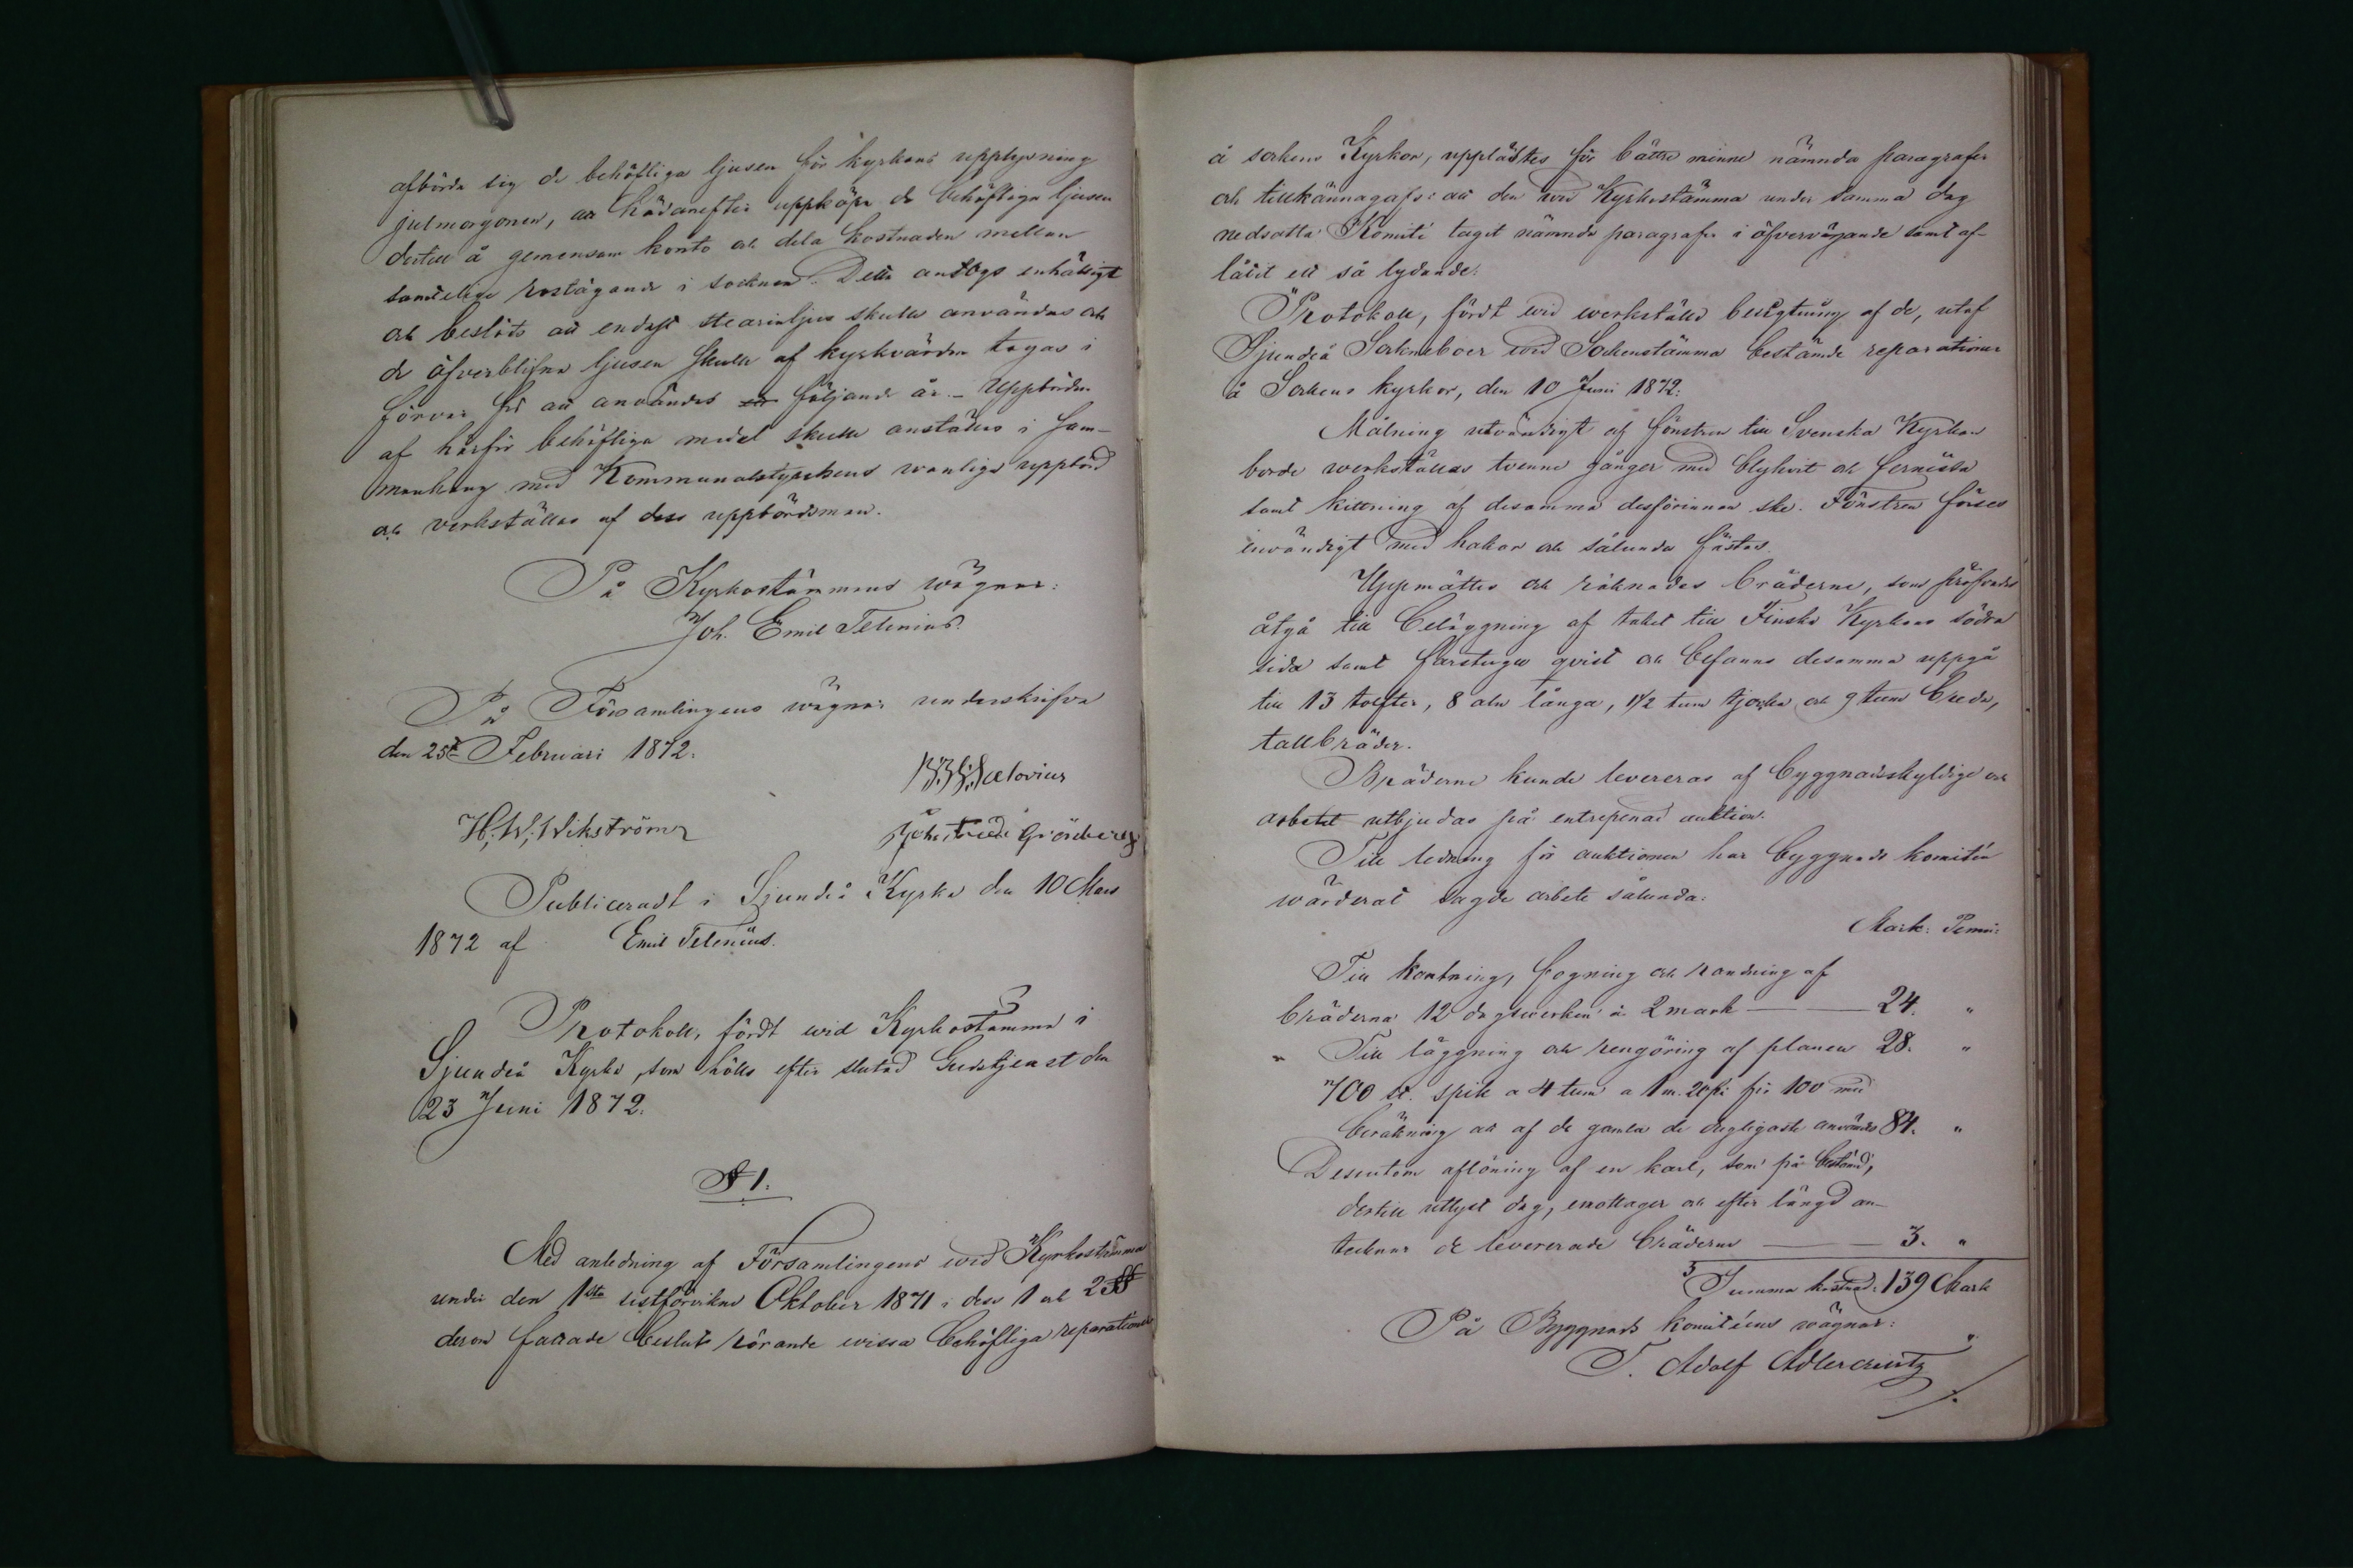 afbörda sig de behöfliga ljusen för kyrkans upplysning
julmorgonen, att hädanefter uppköpa de behöfliga ljusen
dertill å gemensam konto och dela kostnaden mellan
samtelige rotägande i socknen. Detta antogs enhälligt
och beslöts att endast stearinljus skulle användas och
de öfverblifna ljusen skulle af kyrkvärden tagas i
förvar för att användas följande år. – Uppbörden
af härför behöfliga medel skulle anställas i sam-
manhang med Kommunalstyrelsens wanliga uppbörd
och verkställas af dess uppbördsman.
På Kyrkostämmans wägnar:
Joh. Emil Telenius.
På Församlingens wägnar underskrifva
den 25te Februari 1872.
Sælovius
H. W. Wikström
Joh. Grönberg
Publiceradt i Sjundeå Kyrka den 10 Mars
1872 af Emil Telenius.
Protokoll, fördt wid Kyrkostämma i
Sjundeå Kyrka, som hölls efter slutad Gudstjenst den
23 Juni 1872.
§ 1.
Med anledning af Församlingens wid Kyrkostämma
under den 1sta sistförvikne Oktober 1871 i dess 1 och 2 §§
derom fattade beslut rörande wissa behöfliga reparationer
å sockens Kyrkor, upplästes för bättre minne nämnda paragrafer
och tillkännagafs: att den wid Kyrkostämma under samma dag
nedsatta Komité tagit nämnda paragrafer i öfvervägande samt af-
låtit ett så lydande:
"Protokoll, fördt wid werkställd besigtning af de, utaf
Sjundeå Sockneboer wid Sockenstämma bestämde reparationer
å Sockens kyrkor, den 10 Juni 1872.
Målning utvändigt af fönstren till Svenska Kyrkan
borde werkställas tvenne gånger med blyhvit och fernissa
samt kittning af desamma desförinnan ske. Fönstren förses
invändigt med hakar och sålunda fästas.
Uppmättes och räknades bräderne, som pröfvades
åtgå till beläggning af taket till Finska Kyrkans södra
sida samt farstugu qvist och befanns desamma uppgå
till 13 tolfter, 8 aln långa, 1½ tum tjocka och 9 tum breda,
tallbräder.
Bräderne kunde levereras af byggnadsskyldige och
arbetet utbjudas på entreprenad auktion.
Till ledning för auktionen har byggnads komitén
wärderat sagde arbete sålunda:
Mark: Penni:
Till kantning, fogning och randning af
bräderna 12 dagswerken à 2 mark — — 24. "
" Till läggning och rengöring af planen 28. "
700 st. spik a 4 tum a 1 m. 20 pi för 100 med
beräkning att af de gamla de dugligaste användes 84. "
Desutom aflöning af en karl, som på bestämd,
dertill utlyst dag, emottager och efter längd an-
tecknar de levererade bräderne — — 3. "
Summa kostnad: 139 Mark
På Byggnads komitéens wägnar:
T. Adolf Adlercreutz "